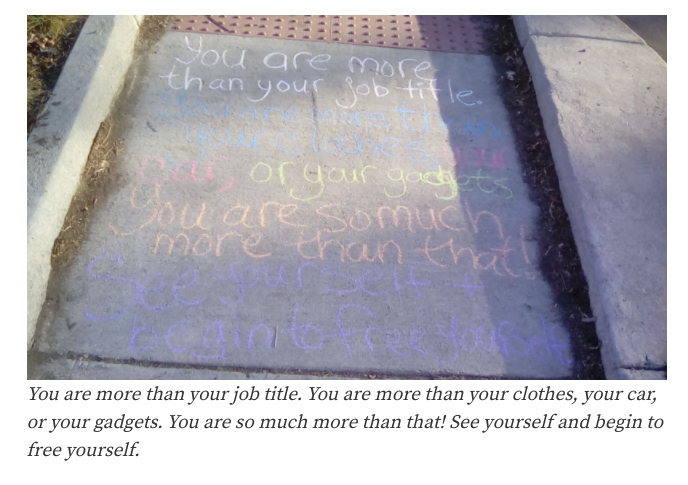 You are more
than your job title.
You are more than
your clothes, your
car, or your gadgets
You are so much
more than that!
See yourself +
begin to free yourself
You are more than your job title. You are more than your clothes, your car,
or your gadgets. You are so much more than that! See yourself and begin to
free yourself.